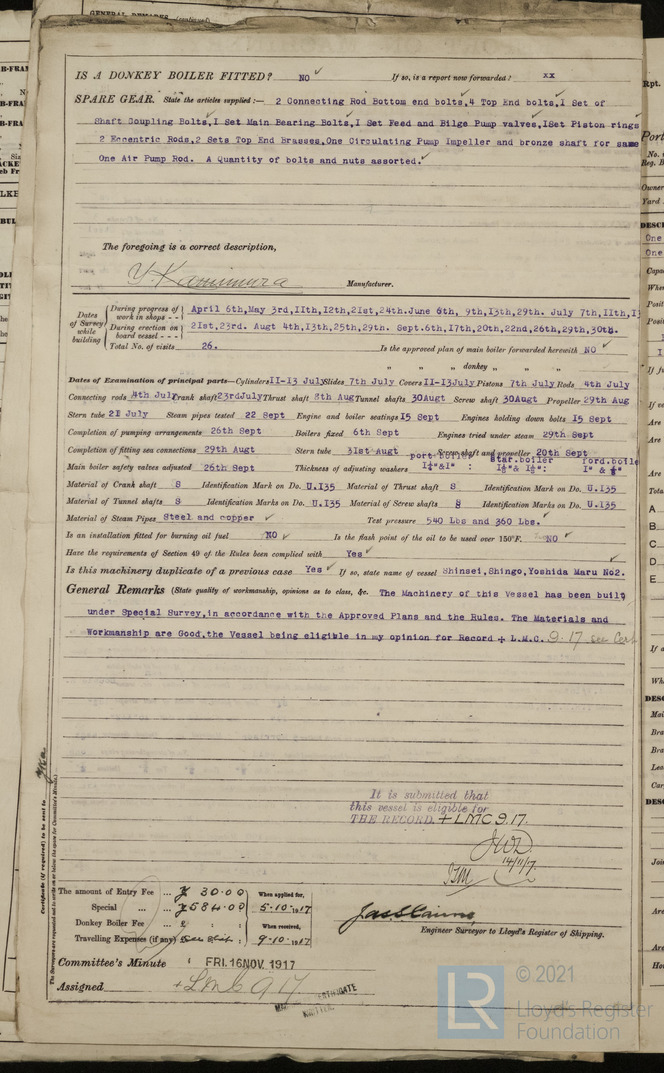 IS A DONKEY BOILER FITTED? NO If so, is a report now forwarded? xx
SPARE GEAR. State the articles supplied:— 2 Connecting Rod Bottom end bolts,4 Top End bolts,I Set of
Shaft Coupling Bolts,I Set Main Bearing Bolts,I Set Feed and Bilge Pump valves,ISet Piston rings
2 Eccentric Rods,2 Sets Top End Brasses,One Circulating Pump Impeller and bronze shaft for same
One Air Pump Rod. A Quantity of bolts and nuts assorted.
The foregoing is a correct description,
Manufacturer.
Dates of Survey while building
During progress of work in shops - - April 6th,May 3rd,IIth,I2th,2Ist,24th.June 6th, 9th,I3th,29th. July 7th,IIth,I3
During erection on board vessel - - - 2Ist,23rd. Augt 4th,I3th,25th,29th. Sept.6th,I7th,20th,22nd,26th,29th,30th.
Total No. of visits 26. Is the approved plan of main boiler forwarded herewith NO
" " " donkey " " "
Dates of Examination of principal parts—Cylinders II-I3 July Slides 7th July Covers II-I3July Pistons 7th July Rods 4th July
Connecting rods 4th July Crank shaft 23rdJuly Thrust shaft 8th Aug Tunnel shafts 30Augt Screw shaft 30Augt Propeller 29th Aug
Stern tube 2I July Steam pipes tested 22 Sept Engine and boiler seatings I5 Sept Engines holding down bolts I5 Sept
Completion of pumping arrangements 26th Sept Boilers fixed 6th Sept Engines tried under steam 29th Sept
Completion of fitting sea connections 29th Augt Stern tube 3Ist Augt Screw shaft and propeller 20th Sept
port.boiler star.boiler ford.boile
Main boiler safety valves adjusted 26th Sept Thickness of adjusting washers
Material of Crank shaft S Identification Mark on Do. U.I35 Material of Thrust shaft S Identification Mark on Do. U.I35
Material of Tunnel shafts S Identification Marks on Do. U.I35 Material of Screw shafts S Identification Marks on Do. U.I35
Material of Steam Pipes Steel and copper Test pressure 540 Lbs and 360 Lbs.
Is an installation fitted for burning oil fuel NO Is the flash point of the oil to be used over 150°F. NO
Have the requirements of Section 49 of the Rules been complied with Yes
Is this machinery duplicate of a previous case Yes If so, state name of vessel Shinsei,Shingo,Yoshida Maru No2.
General Remarks (State quality of workmanship, opinions as to class, &c. The Machinery of this Vessel has been built
under Special Survey,in accordance with the Approved Plans and the Rules. The Materials and
Workmanship are Good,the Vessel being eligible in my opinion for Record + L.M.C. 9.17 see Cert
It is submitted that
this vessel is eligible for
THE RECORD. + LMC 9.17.
14/11/17.
The amount of Entry Fee ... 30.00 When applied for,
Special ... 584.00 5.10.1917
Donkey Boiler Fee ... £ : : When received,
Travelling Expenses (if any) 9.10.1917
Engineer Surveyor to Lloyd's Register of Shipping.
Committee's Minute FRI.16NOV.1917
Assigned + LMC 9.17
© 2021
LR Lloyd's Register
Foundation